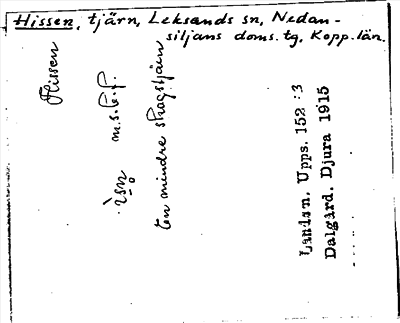 Hissen, tjärn, Leksands sn, Nedan-
siljans doms. tg, Kopp. län.
Hissen
m.s.b.f.
En mindre skogstjärn
Landsm. Upps. 152:3
Dalgård. Djura 1915